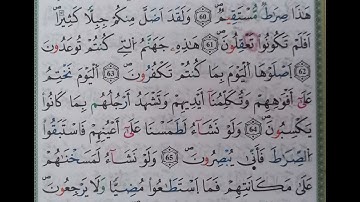 هَٰذَا صِرَٰطٌ مُّسْتَقِيمٌ ۝٦٠ وَلَقَدْ أَضَلَّ مِنكُمْ جِبِلًّا كَثِيرًا
أَفَلَمْ تَكُونُوا۟ تَعْقِلُونَ ۝٦١ هَٰذِهِۦ جَهَنَّمُ ٱلَّتِى كُنتُمْ تُوعَدُونَ
۝٦٢ ٱصْلَوْهَا ٱلْيَوْمَ بِمَا كُنتُمْ تَكْفُرُونَ ۝٦٣ ٱلْيَوْمَ نَخْتِمُ
عَلَىٰٓ أَفْوَٰهِهِمْ وَتُكَلِّمُنَآ أَيْدِيهِمْ وَتَشْهَدُ أَرْجُلُهُم بِمَا كَانُوا۟
يَكْسِبُونَ ۝٦٤ وَلَوْ نَشَآءُ لَطَمَسْنَا عَلَىٰٓ أَعْيُنِهِمْ فَٱسْتَبَقُوا۟
ٱلصِّرَٰطَ فَأَنَّىٰ يُبْصِرُونَ ۝٦٥ وَلَوْ نَشَآءُ لَمَسَخْنَٰهُمْ
عَلَىٰ مَكَانَتِهِمْ فَمَا ٱسْتَطَٰعُوا۟ مُضِيًّا وَلَا يَرْجِعُونَ